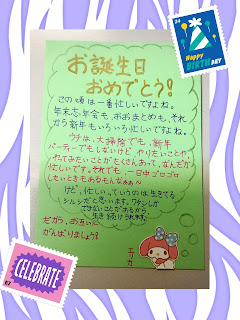 24
Happy
BIRTHDAY
お誕生日
おめでとう!
この頃は一番忙しいですよね。
年末忘年会も、おおまとめも、それ
から新年もいろいろ忙しいですよね。
ウチは、大掃除でも、新年
パーティーでもしないけど やりたいことや、
やってみたいことがたくさんあって、なんだか
忙しいです。それでも、一日中ゴロゴロ
したいときもあるもんなぁぁ〜
けど、「忙しい」っていうのは生きてる
シルシだと思います。ワタシしか
できないことがあるから、
生き続けられます。
だから、お互いに
がんばりましょう!!
エリカ
CELEBRATE